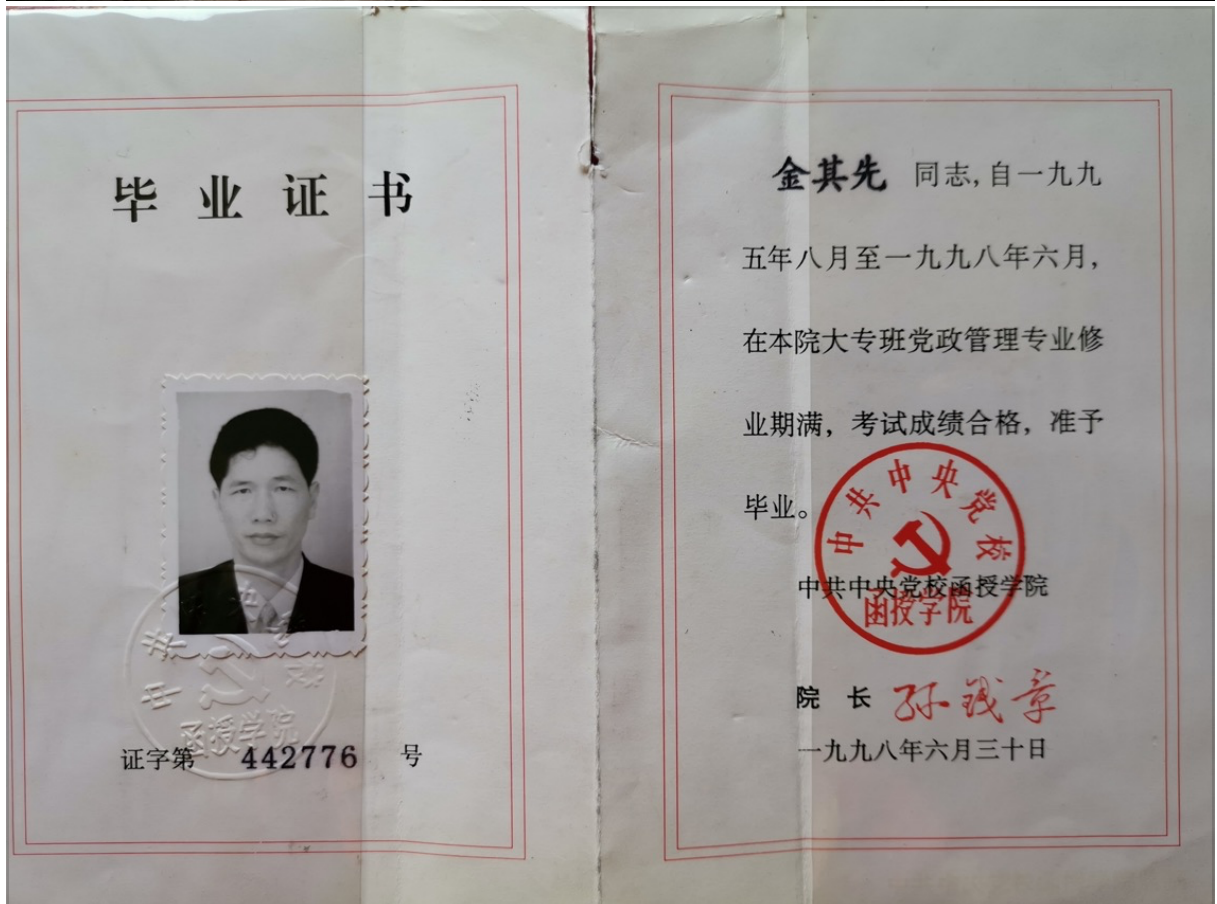 毕业证书
中共中央党校
函授学院
证字第 442776 号
金其先 同志,自一九九
五年八月至一九九八年六月,
在本院大专班党政管理专业修
业期满，考试成绩合格，准予
毕业。
中共中央党校
函授学院
中共中央党校函授学院
院 长 孙钱章
一九九八年六月三十日